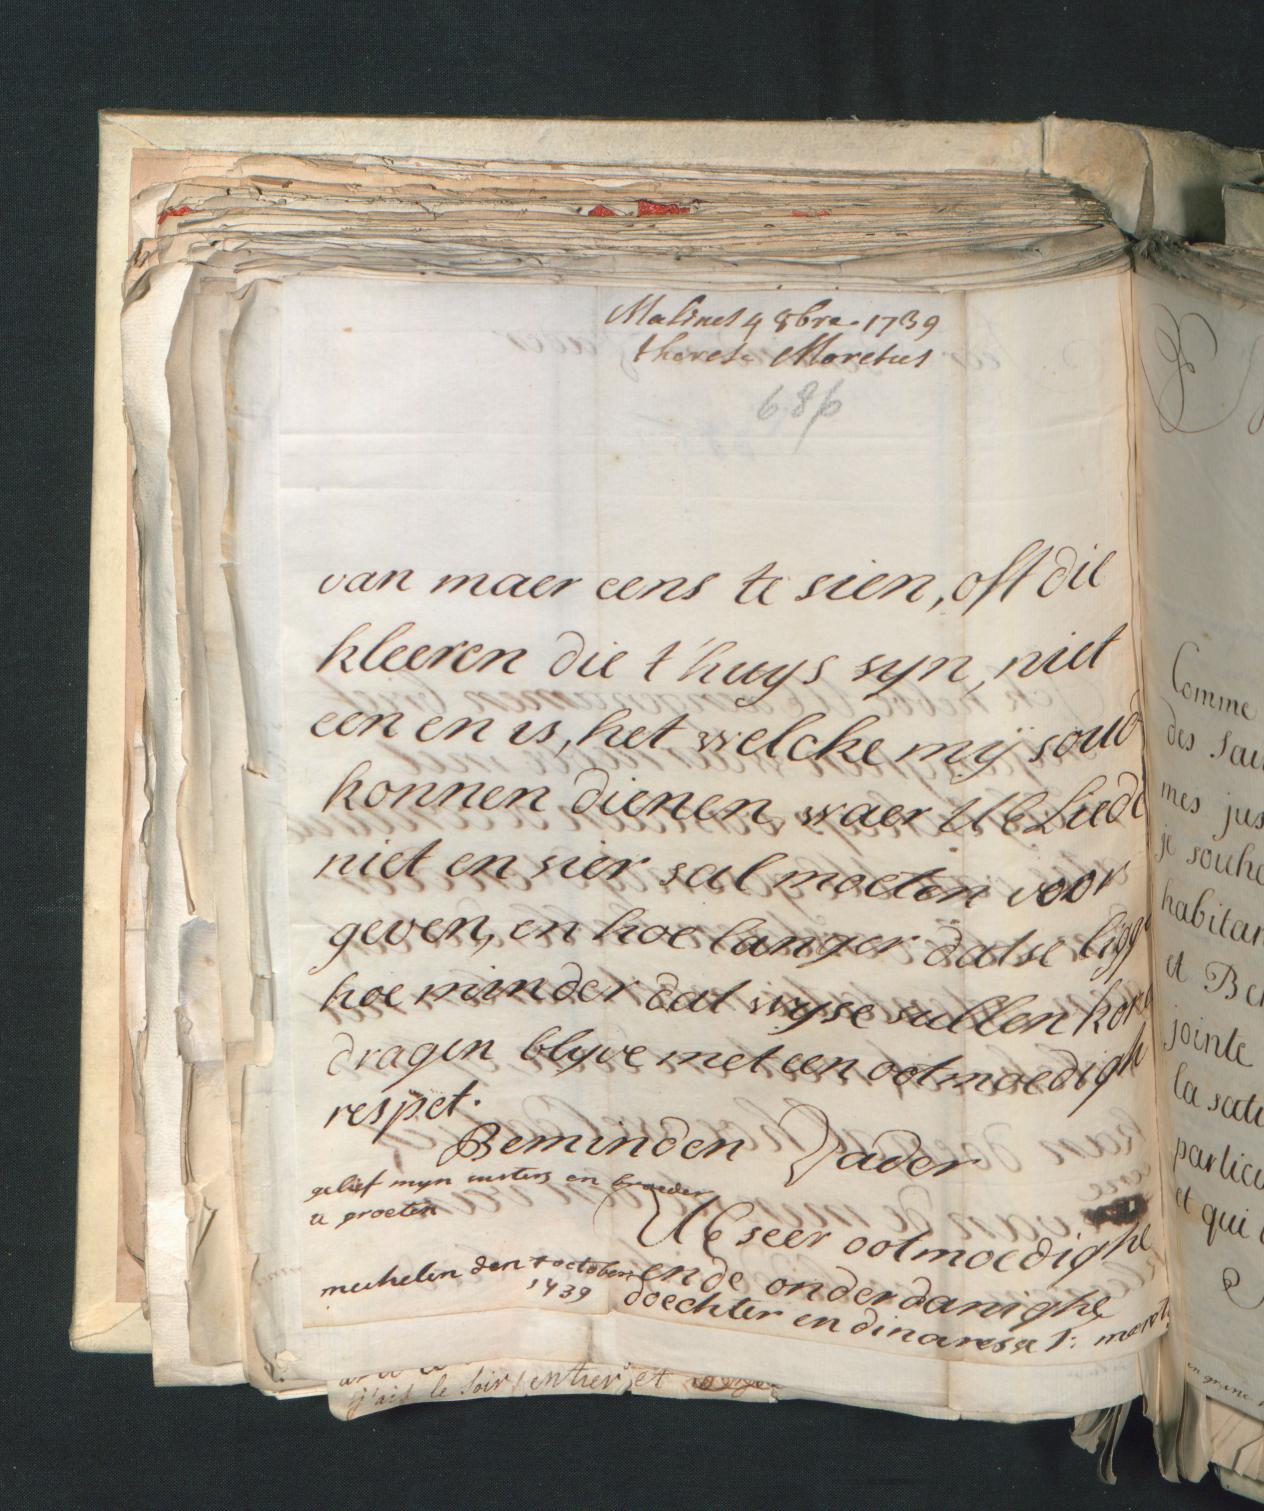 Malines 4 8bre 1739
therese Moretus
686
van maer eens te sien, oft die
kleeren die t'huys syn, niet
een en is, het welcke mij soud
konnen dienen, waer UE Lied
niet en sier sal moeten voor
geven, en hoe langer datse ligg
hoe minder dat wyse sullen kon
dragen blyve met een ootmoedigh
respet.
Beminden Vader
gelief myn susters en broeder
te groeten
UE seer ootmoedighe
ende onderdanighe
doechter en dinaresse
mechelen den 4 october
1739
Comme
des
mes jus
je souh
habitan
et Be
jointe
la sati
particu
et qui
j'ais le soir entier, et